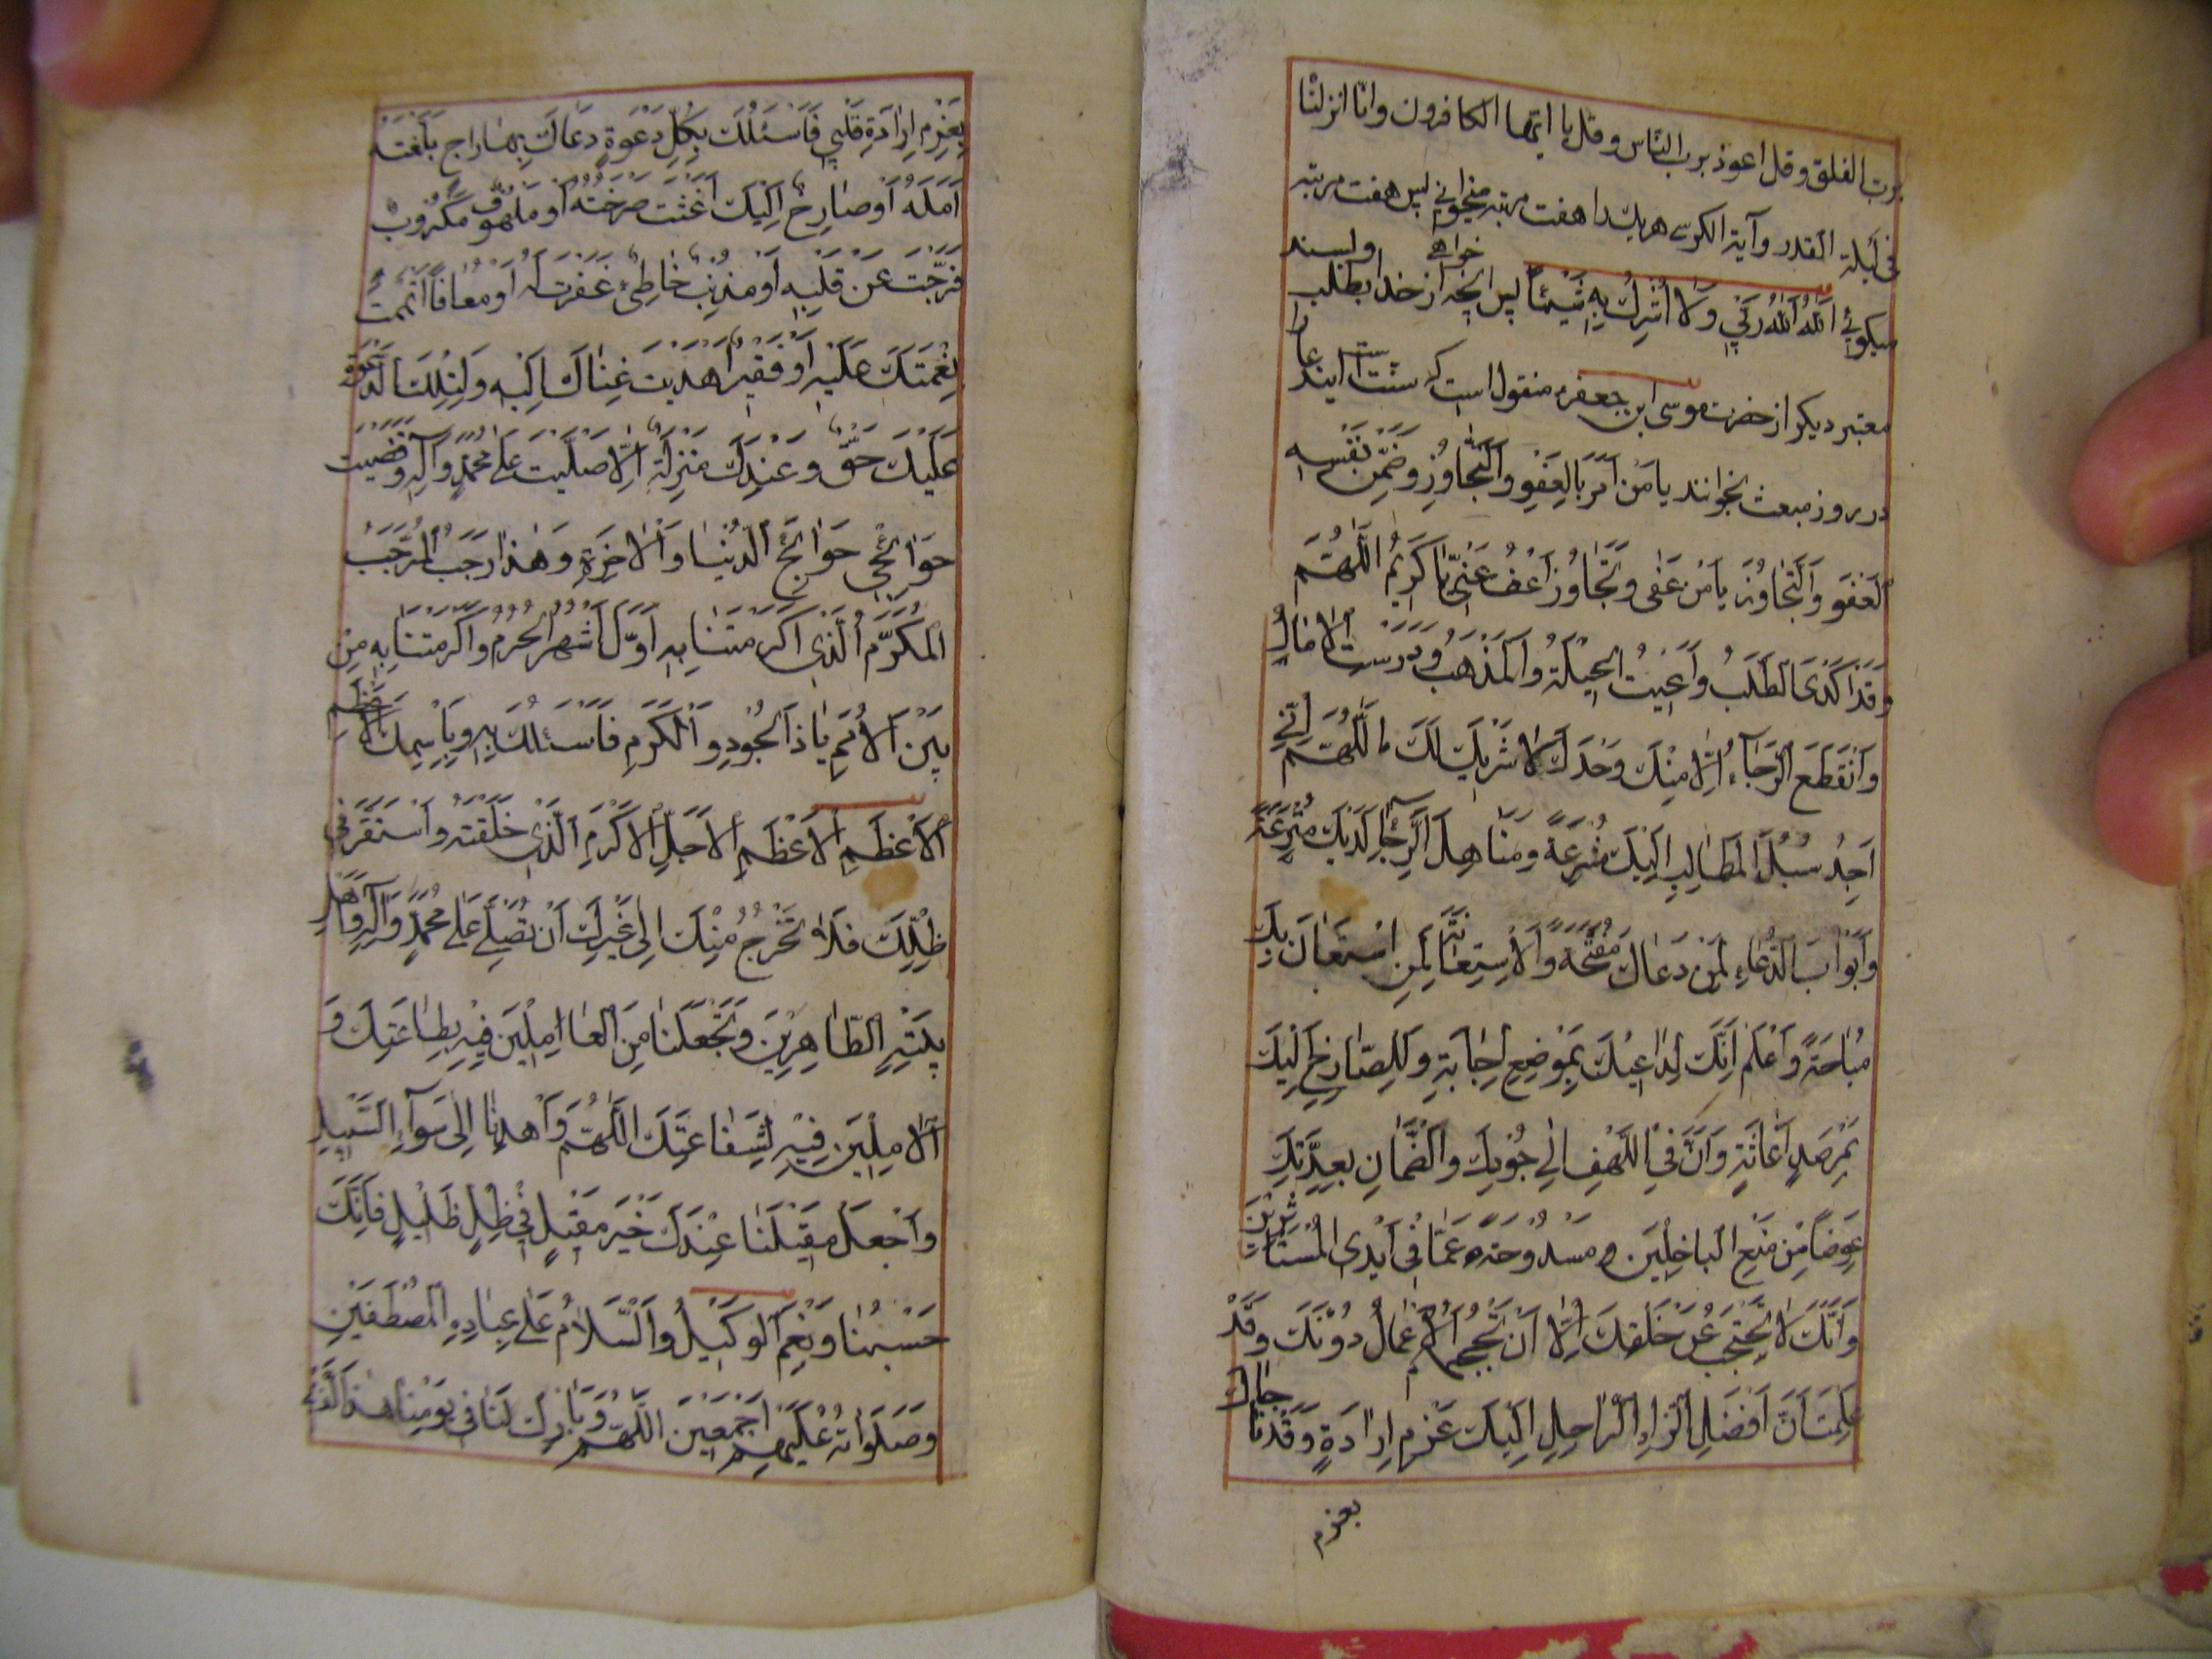 برب الفلق و قل اعوذ برب الناس و قل یا ایها الکافرون و انا انزلنا
فی لیلة القدر و آیة الکرسی هریک را هفت مرتبه میخوانی پس هفت مرتبه
میکوئی اَللهُ اَللهُ رَبّی وَلا اُشْرِكُ بِهِ شَیْئاً پس آنچه خواهی از خدا بطلب و بسند
معتبر دیکر از حضرت موسی ابن جعفر منقول است که سنت است این دعا را
در روز مبعث بخوانند یا مَنْ اَمَرَ بِالعَفْوِ وَالتَّجاوُزِ وَضَمِنَ نَفْسِهِ
العَفْوَ وَالتَّجاوُزَ یا مَن عَفی وَتَجاوَزَ اُعْفُ عَنّی یا کَریمُ اَللّهُمَّ
وَقَدْ اَکْدَی الطَّلَبُ وَاَعْیَتِ الحیلَةُ وَالمَذْهَبُ وَدَرَسَتِ الآمالُ
وَانْقَطَعَ الرَّجاءُ اِلّا مِنْكَ وَحْدَكَ لا شَریكَ لَكَ اَللّهُمَّ اِنّی
اَجِدُ سُبُلَ المَطالِبِ اِلَیْكَ مُشْرَعَةً وَمَناهِلَ الرَّجاءِ لَدَیْكَ مُتْرَعَةً
وَاَبْوابَ الدُّعاءِ لِمَنْ دَعاكَ مُفَتَّحَةً وَالاِسْتِعانَةَ لِمَنِ اسْتَعانَ بِكَ
مُباحَةً وَاَعْلَمُ اَنَّكَ لِداعیكَ بِمَوْضِعِ اِجابَةٍ وَلِلصّارِخِ اِلَیْكَ
بِمَرْصَدِ اِغاثَةٍ وَاَنَّ فِی اللَّهْفِ اِلی جُودِكَ وَالضَّمانِ بِعِدَتِكَ
عِوَضاً مِنْ مَنْعِ الباخِلینَ وَ مَنْدُوحَةً عَمّا فی اَیْدِی المُسْتَاْثِرینَ
وَاَنَّكَ لا تَحْتَجِبُ عَنْ خَلْقِكَ اِلّا اَنْ تَحْجُبَهُمُ الاَعْمالُ دُونَكَ وَقَدْ
عَلِمْتُ اَنَّ اَفْضَلَ الزّادِ الرّاحِلِ اِلَیْكَ عَزْمُ اِرادَةٍ وَقَدْ ناجاكَ
بعزم
بِعَزْمِ اِرادَةِ قَلْبی فَاَسْئَلُكَ بِکُلِّ دَعْوَةٍ دَعاكَ بِها راجٍ بَلَّغْتَهُ
اَمَلَهُ اَوْ صارِخٌ اِلَیْكَ اَغَثْتَ صَرْخَتَهُ اَوْ مَلْهُوفٌ مَکْرُوبٌ
فَرَّجْتَ عَنْ قَلْبِهِ اَوْ مُذْنِبٌ خاطِئٌ غَفَرْتَ لَهُ اَوْ مُعافاً اَتْمَمْتَ
نِعْمَتَكَ عَلَیْهِ اَوْ فَقیرٌ اَهْدَیْتَ غِناكَ اِلَیْهِ وَلِتِلْكَ الدَّعْوَةِ
عَلَیْكَ حَقٌّ وَعِنْدَكَ مَنْزِلَةٌ اِلّا صَلَّیْتَ عَلی مُحَمَّدٍ وَآلِهِ وَقَضَیْتَ
حَوائِجی حَوائِجَ الدُّنْیا وَالآخِرَةِ وَهذا رَجَبُ المُرَجَّبُ
المُکَرَّمُ الَّذی اَکْرَمْتَنا بِهِ اَوَّلُ اَشْهُرِ الحُرُمِ وَاَکْرَمْتَنا بِهِ مِنْ
بَیْنِ الاُمَمِ یا ذَا الجُودِ وَالکَرَمِ فَاَسْئَلُكَ بِهِ وَبِاسْمِكَ الاَعْظَمِ
الاَعْظَمِ الاَعْظَمِ الاَجَلِّ الاَکْرَمِ الَّذی خَلَقْتَهُ وَاسْتَقَرَّ فی
ظِلِّكَ فَلا تَخْرُجُ مِنْكَ اِلی غَیْرِكَ اَنْ تُصَلِّیَ عَلی مُحَمَّدٍ وَآلِهِ وَاَهْلِ
بَیْتِهِ الطّاهِرینَ وَتَجْعَلَنا مِنَ العامِلینَ فیهِ بِطاعَتِكَ وَ
الآمِلینَ فیهِ لِشَفاعَتِكَ اَللّهُمَّ وَاهْدِنا اِلی سَواءِ السَّبیلِ
وَاجْعَلْ مَقیلَنا عِنْدَكَ خَیْرَ مَقیلٍ فی ظِلٍّ ظَلیلٍ فَاِنَّكَ
حَسْبُنا وَنِعْمَ الوَکیلُ وَالسَّلامُ عَلی عِبادِهِ المُصْطَفَیْنَ
وَصَلَواتُهُ عَلَیْهِمْ اَجْمَعینَ اَللّهُمَّ وَبارِكْ لَنا فی یَوْمِنا هذَا الَّذی